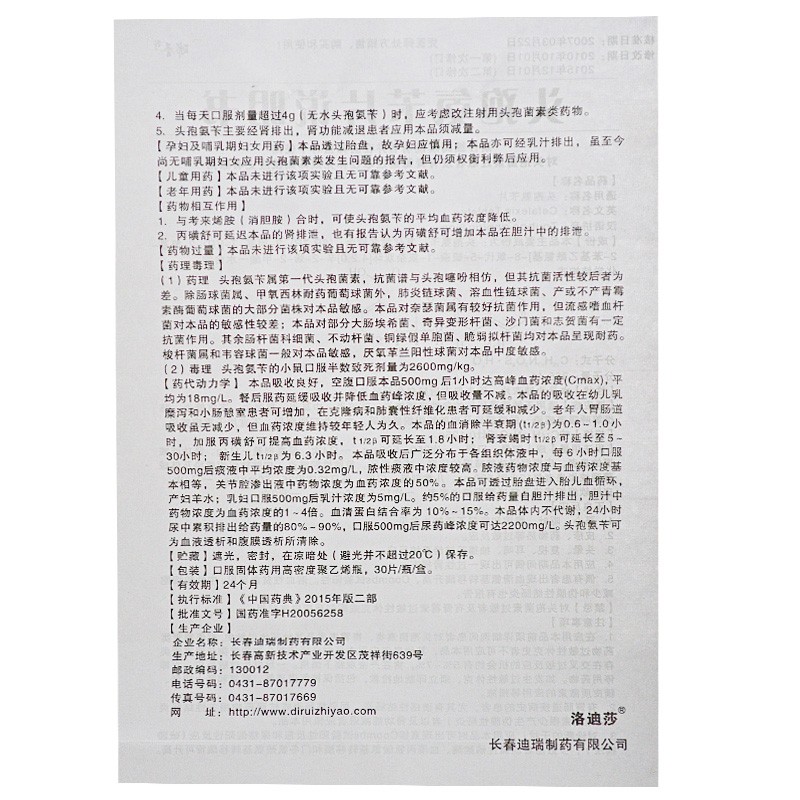 4. 当每天口服剂量超过4g（无水头孢氨苄）时，应考虑改注射用头孢菌素类药物。
5. 头孢氨苄主要经肾排出，肾功能减退患者应用本品须减量。
【孕妇及哺乳期妇女用药】本品透过胎盘，故孕妇应慎用；本品亦可经乳汁排出，虽至今
尚无哺乳期妇女应用头孢菌素类发生问题的报告，但仍须权衡利弊后应用。
【儿童用药】本品未进行该项实验且无可靠参考文献。
【老年用药】本品未进行该项实验且无可靠参考文献。
【药物相互作用】
1. 与考来烯胺（消胆胺）合时，可使头孢氨苄的平均血药浓度降低。
2. 丙磺舒可延迟本品的肾排泄，也有报告认为丙磺舒可增加本品在胆汁中的排泄。
【药物过量】本品未进行该项实验且无可靠参考文献。
【药理毒理】
（1）药理 头孢氨苄属第一代头孢菌素，抗菌谱与头孢噻吩相仿，但其抗菌活性较后者为
差。除肠球菌属、甲氧西林耐药葡萄球菌外，肺炎链球菌、溶血性链球菌、产或不产青霉
素酶葡萄球菌的大部分菌株对本品敏感。本品对奈瑟菌属有较好抗菌作用，但流感嗜血杆
菌对本品的敏感性较差；本品对部分大肠埃希菌、奇异变形杆菌、沙门菌和志贺菌有一定
抗菌作用。其余肠杆菌科细菌、不动杆菌、铜绿假单胞菌、脆弱拟杆菌均对本品呈现耐药。
梭杆菌属和韦容球菌一般对本品敏感，厌氧革兰阳性球菌对本品中度敏感。
（2）毒理 头孢氨苄的小鼠口服半数致死剂量为2600mg/kg。
【药代动力学】 本品吸收良好，空腹口服本品500mg 后1小时达高峰血药浓度(Cmax)，平
均为18mg/L。餐后服药延缓吸收并降低血药峰浓度，但吸收量不减。本品的吸收在幼儿乳
糜泻和小肠憩室患者可增加，在克隆病和肺囊性纤维化患者可延缓和减少。老年人胃肠道
吸收虽无减少，但血药浓度维持较年轻人为久。本品的血消除半衰期(t1/2β)为0.6~1.0小
时，加服丙磺舒可提高血药浓度，t1/2β可延长至1.8小时；肾衰竭时t1/2β可延长至5~
30小时；新生儿t1/2β为6.3小时。本品吸收后广泛分布于各组织体液中，每6小时口服
500mg后痰液中平均浓度为0.32mg/L，脓性痰液中浓度较高。脓液药物浓度与血药浓度基
本相等，关节腔渗出液中药物浓度为血药浓度的50%。本品可透过胎盘进入胎儿血循环，
产妇羊水；乳妇口服500mg后乳汁浓度为5mg/L。约5%的口服给药量自胆汁排出，胆汁中
药物浓度为血药浓度的1~4倍。血清蛋白结合率为10%~15%。本品体内不代谢，24小时
尿中累积排出给药量的80%~90%，口服500mg后尿药峰浓度可达2200mg/L。头孢氨苄可
为血液透析和腹膜透析所清除。
【贮藏】遮光，密封，在凉暗处（避光并不超过20℃）保存。
【包装】口服固体药用高密度聚乙烯瓶，30片/瓶/盒。
【有效期】24个月
【执行标准】《中国药典》2015年版二部
【批准文号】国药准字H20056258
【生产企业】
企业名称：长春迪瑞制药有限公司
生产地址：长春高新技术产业开发区茂祥街639号
邮政编码：130012
电话号码：0431-87017779
传真号码：0431-87017669
网 址：http://www.diruizhiyao.com
洛迪莎®
长春迪瑞制药有限公司